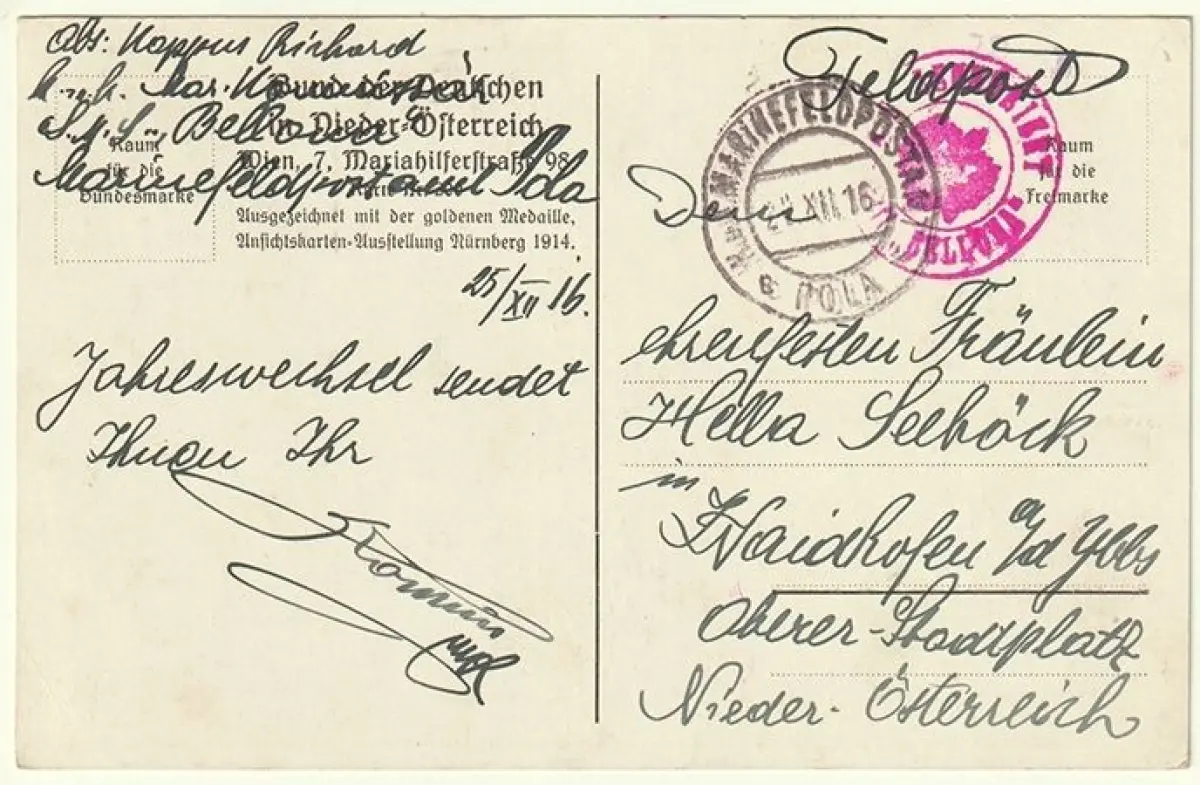 Abs: Kappus Richard
k. u. k. Mar. Kommissär
S. M. S. „Bellona"
Marinefeldpostamt Pola
Bund der Deutschen
in Nieder-Österreich
Wien, 7, Mariahilferstraße 98
Ausgezeichnet mit der goldenen Medaille,
Ansichtskarten-Ausstellung Nürnberg 1914.
Raum
für die
Bundesmarke
25/XII 16.
Jahreswechsel sendet
Ihnen Ihr
Feldpost
K.u.K. MARINEFELDPOSTAMT
XII 16
POLA
"BELLONA"
Raum
für die
Freimarke
Dem
ehrenfesten Fräulein
Hella Seeböck
in
Waidhofen a/d Ybbs
Oberer-Stadtplatz
Nieder-Österreich